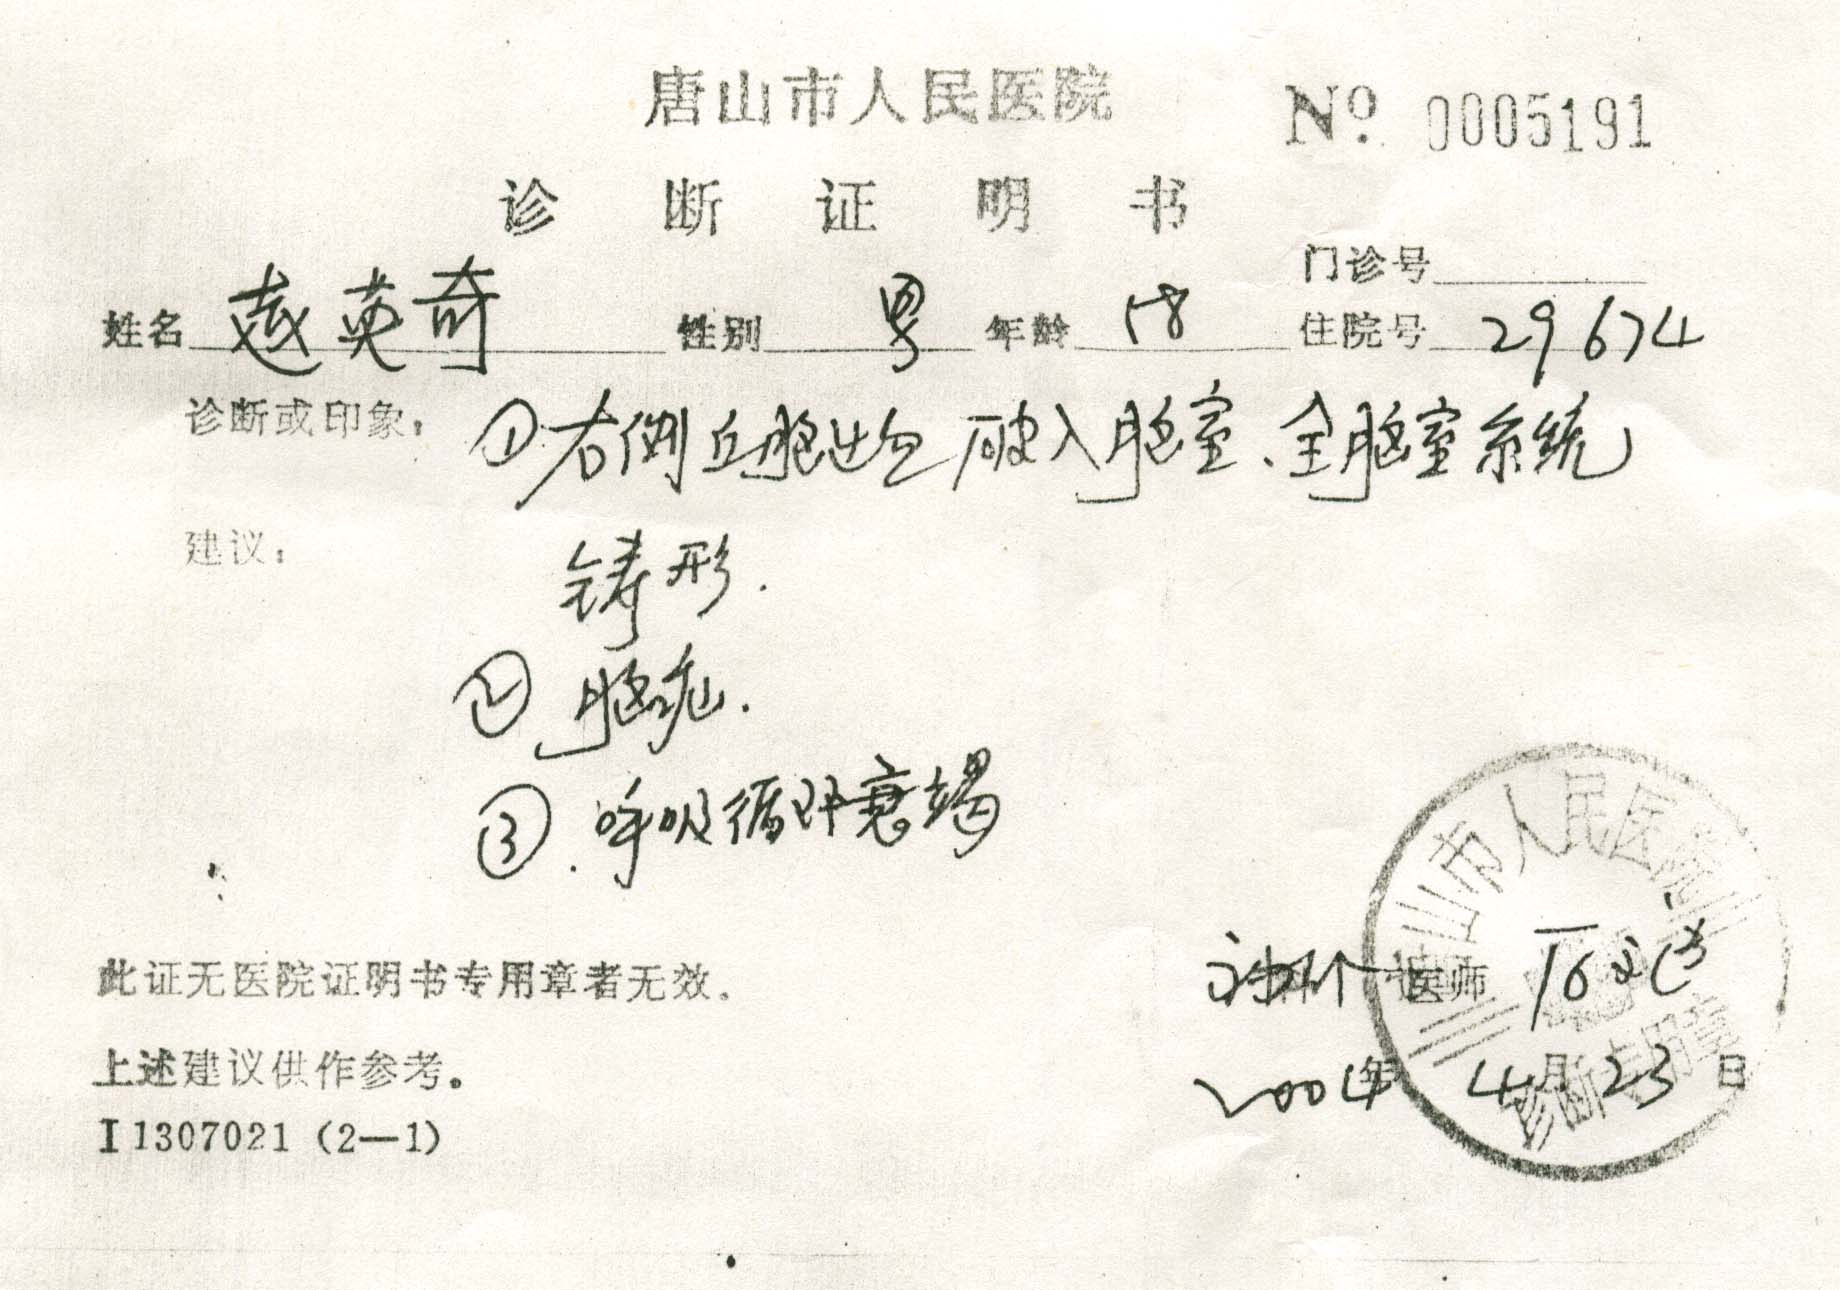 唐山市人民医院
No. 0005191
诊断证明书
门诊号
姓名 赵英奇 性别 男 年龄 58 住院号 29674
诊断或印象: ①右侧丘脑出血破入脑室、全脑室系统
建议: 铸形.
②脑疝.
③.呼吸循环衰竭
山市人民医院
诊断专用章
此证无医院证明书专用章者无效。
医师
上述建议供作参考。
2004年4月23日
I1307021 (2—1)